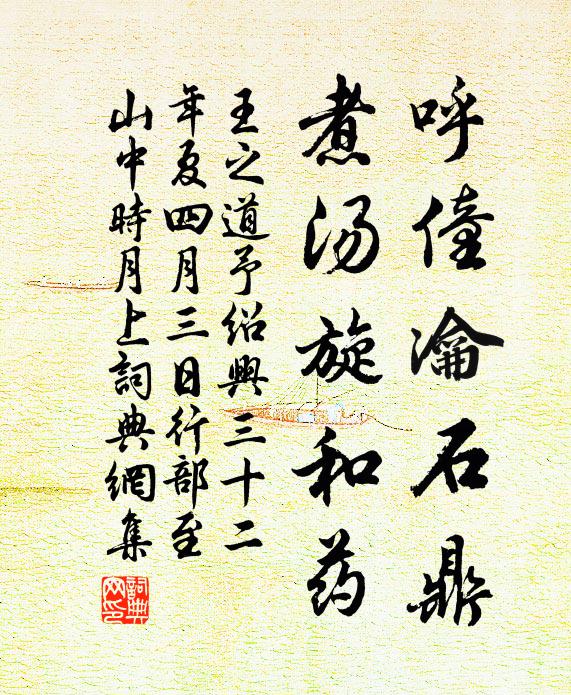 呼僮瀹石鼎
煮汤旋和药
王之道予绍興三十二
年夏四月三日行部至
山中時月上詞典網集
詞典网印